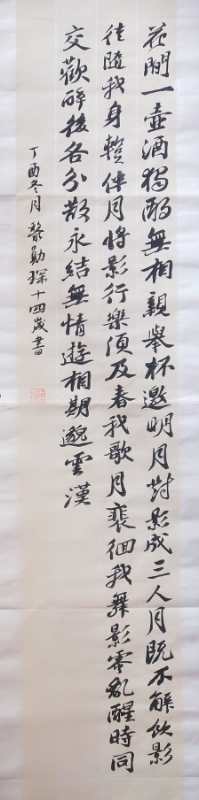 花間一壺酒獨酌無相親舉杯邀明月對影成三人月既不解飲影
徒隨我身暫伴月將影行樂須及春我歌月裴徊我舞影零亂醒時同
交歡醉後各分散永結無情遊相期邈雲漢
丁酉冬月 勛琛十四歲書